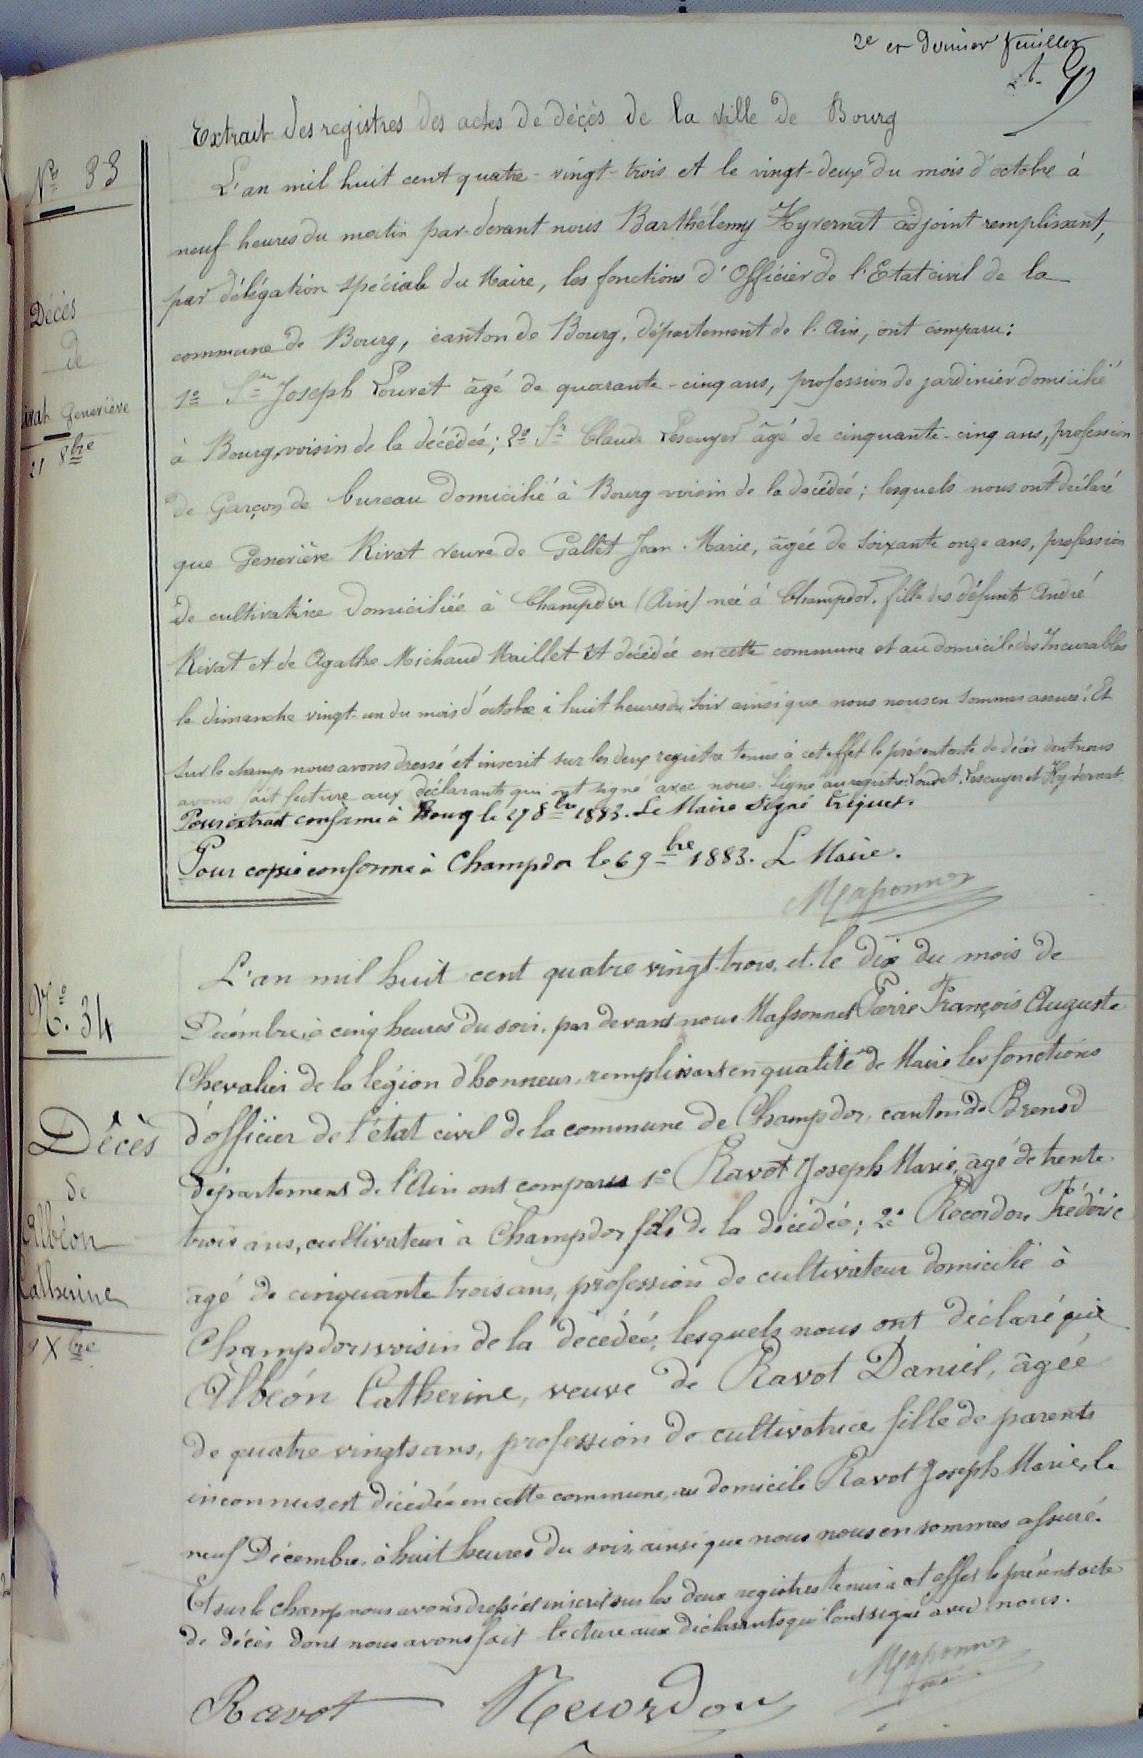 2e et dernier feuillet
Extrait des registres des actes de décès de la ville de Bourg
No 33
L'an mil huit cent quatre-vingt-trois et le vingt-deux du mois d'octobre à
neuf heures du matin par-devant nous Barthélemy Hyvernat adjoint remplissant,
par délégation spéciale du Maire, les fonctions d'Officier de l'Etat civil de la
commune de Bourg, canton de Bourg, département de l'Ain, ont comparu:
1o Sr Joseph Louvet âgé de quarante-cinq ans, profession de jardinier domicilié
à Bourg, voisin de la décédée; 2o Sr Claude Lescuyer âgé de cinquante-cinq ans, profession
de Garçon de bureau domicilié à Bourg voisin de la décédée; lesquels nous ont déclaré
que Geneviève Rivat veuve de Gallet Jean-Marie, âgée de soixante onze ans, profession
de cultivatrice domiciliée à Champdor (Ain) née à Champdor, fille des défunts André
Rivat et de Agathe Michaud Maillet est décédée en cette commune et au domicile des Incurables
le dimanche vingt-un du mois d'octobre à huit heures du soir ainsi que nous nous en sommes assuré. Et
sur le champ nous avons dressé et inscrit sur les deux registres tenus à cet effet le présent acte de décès dont nous
avons fait lecture aux déclarants qui ont signé avec nous. Signé au registre: Louvet, Lescuyer et Hyvernat
Pour extrait conforme à Bourg le 27 8bre 1883. Le Maire Signé
Pour copie conforme à Champdor le 6 9bre 1883. Le Maire.
Massonnet
Décès
de
Rivat Geneviève
21 8bre
No. 34
L'an mil huit cent quatre vingt-trois, et le dix du mois de
Décembre, à cinq heures du soir, par devant nous Massonnet Pierre François Auguste
Chevalier de la légion d'honneur, remplissant en qualité de Maire les fonctions
d'officier de l'état civil de la commune de Champdor, canton de Brenod
département de l'Ain ont comparu 1o Ravot Joseph Marie, âgé de trente-
trois ans, cultivateur à Champdor fils de la décédée; 2o Recordon Frédéric
âgé de cinquante trois ans, profession de cultivateur domicilié à
Champdor voisin de la décédée, lesquels nous ont déclaré que
Albéon Catherine, veuve de Ravot Daniel, âgée
de quatre vingts ans, profession de cultivatrice fille de parents
inconnus, est décédée en cette commune, au domicile Ravot Joseph Marie, le
neuf Décembre, à huit heures du soir, ainsi que nous nous en sommes assuré.
Et sur le champ nous avons dressé et inscrit sur les deux registres tenus à cet effet le présent acte
de décès dont nous avons fait lecture aux déclarants qui l'ont signé avec nous.
Ravot Recordon Massonnet
Décès
de
Albéon
Catherine
9 Xbre